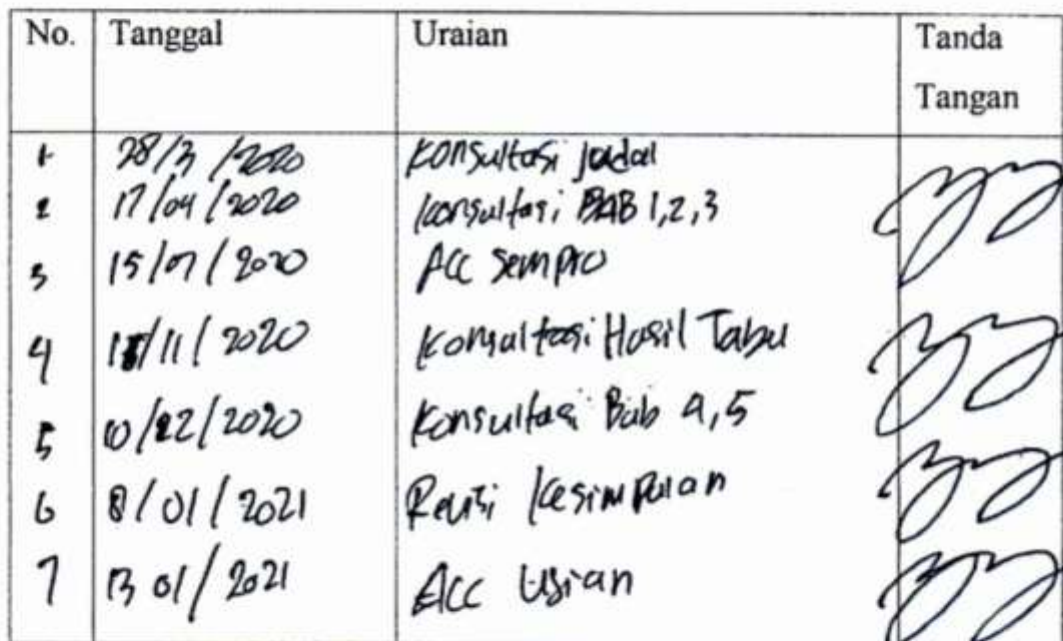 No. Tanggal Uraian Tanda Tangan
1 28/3/2020 Konsultasi judul
2 17/04/2020 konsultasi BAB 1,2,3
3 15/07/2020 ACC Sempro
4 /11/2020 Konsultasi Hasil Tabu
5 10/12/2020 Konsultasi Bab 4,5
6 8/01/2021 Revisi Kesimpulan
7 13 01/2021 ACC Usian